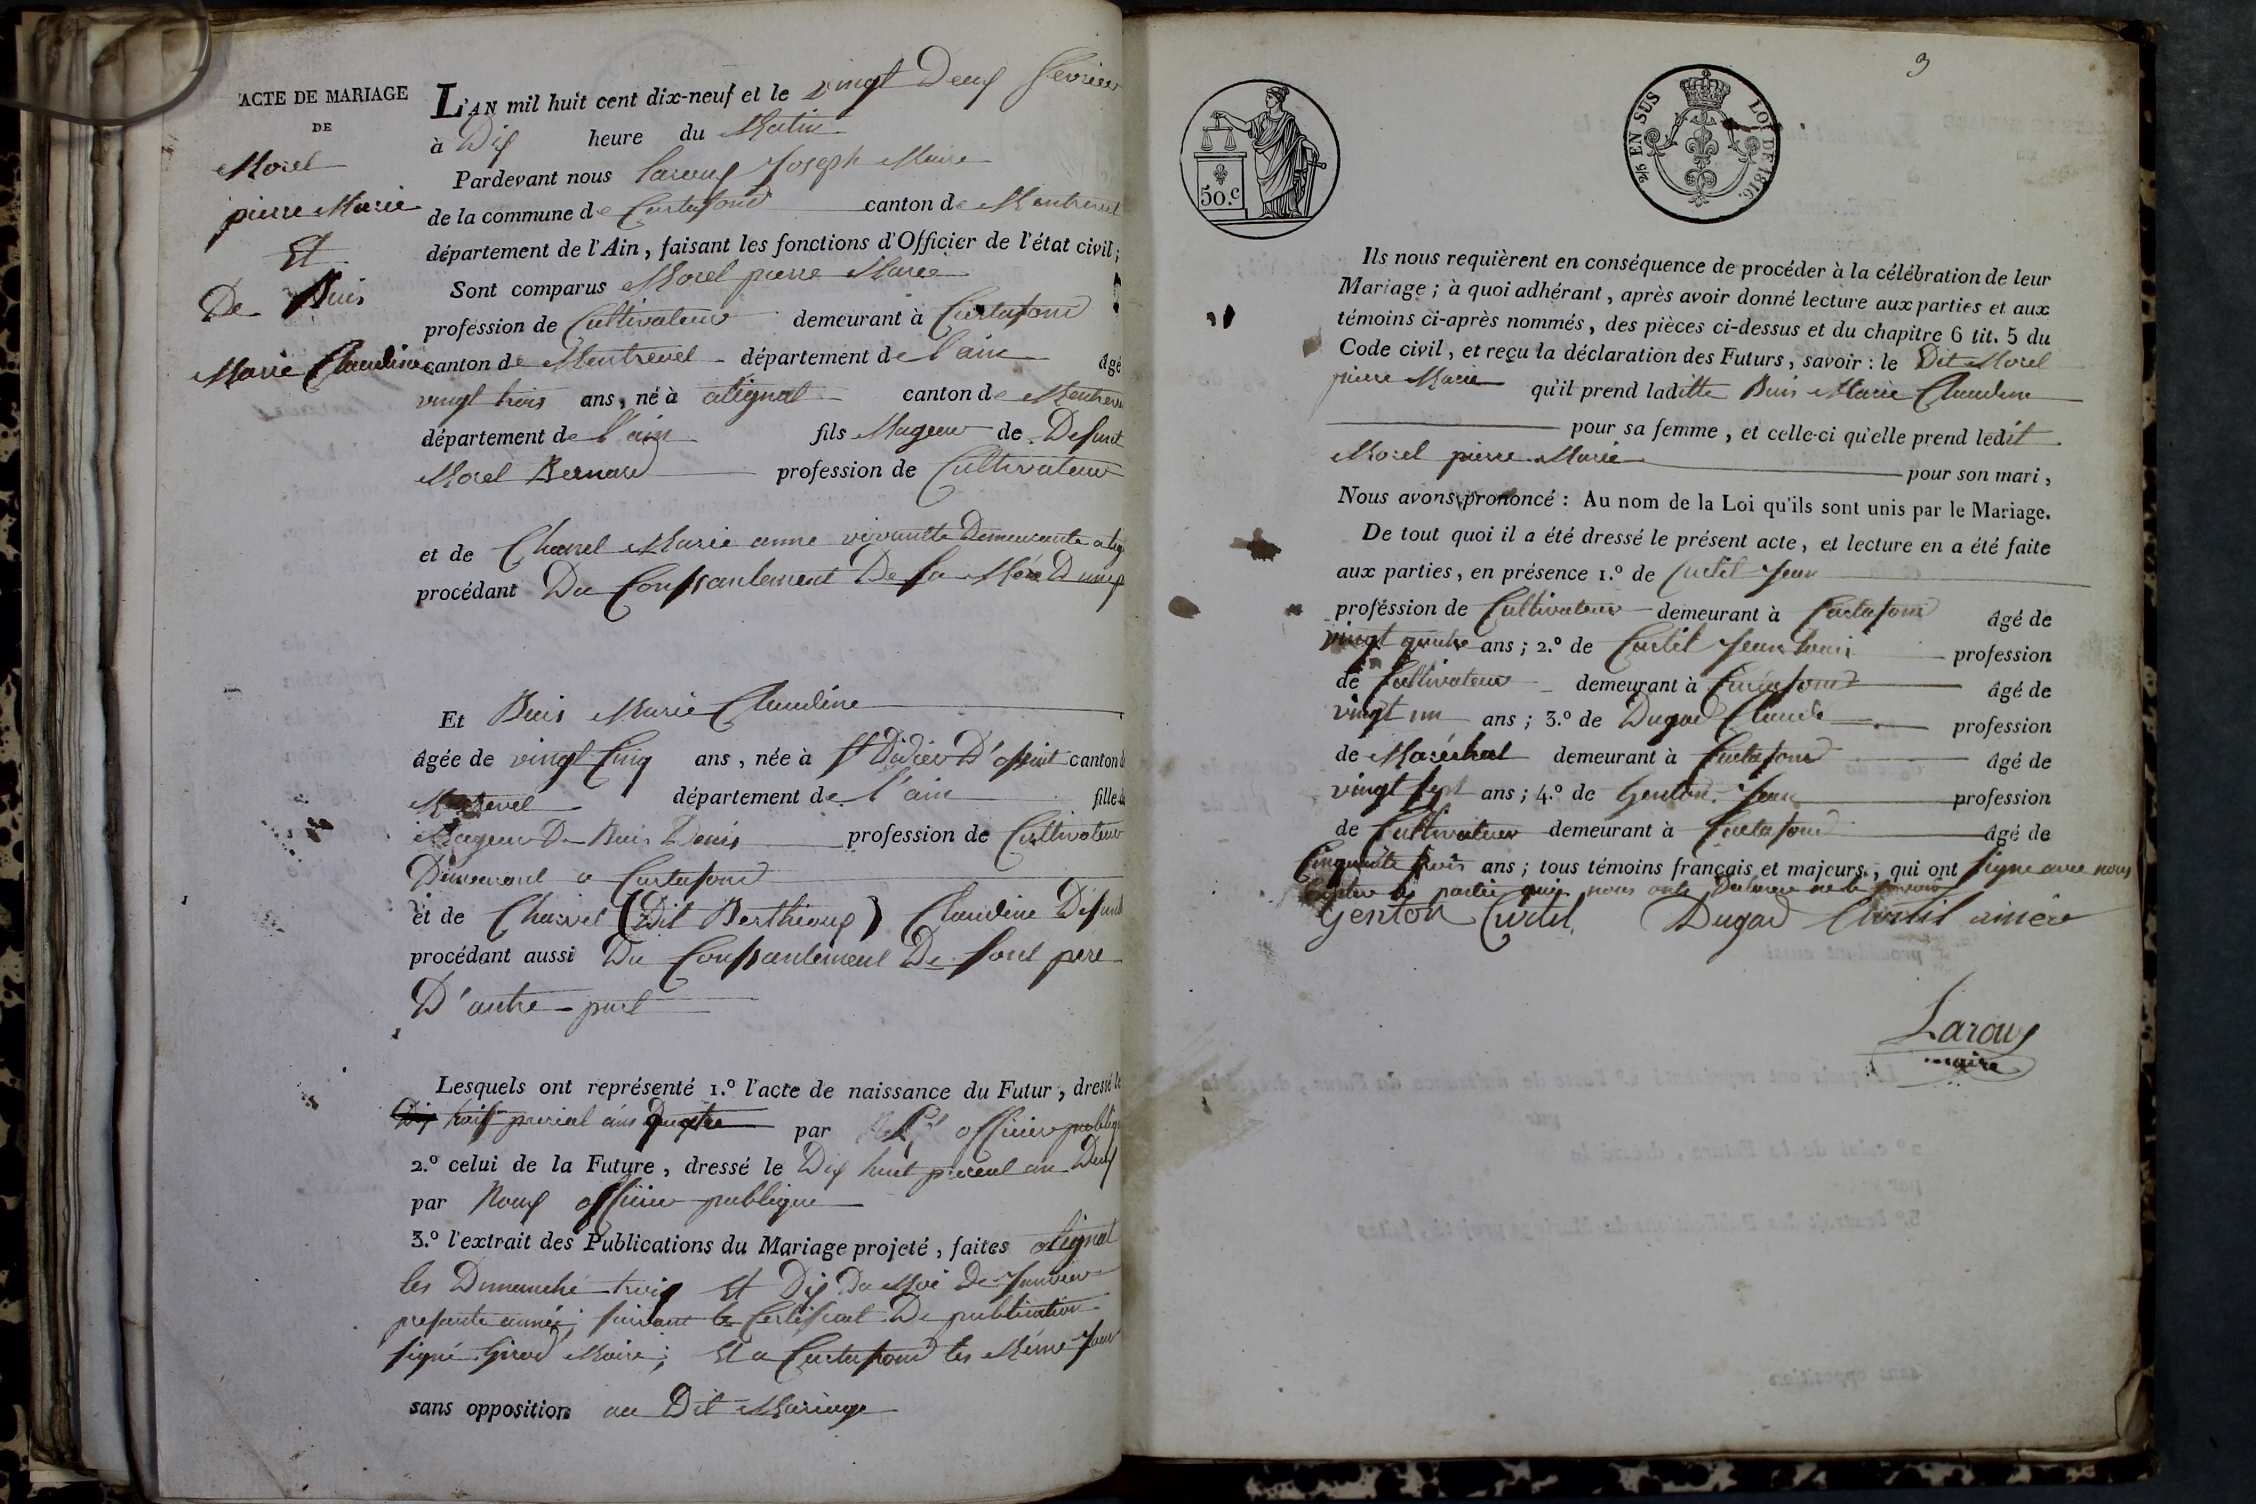 ACTE DE MARIAGE
DE
Morel
pierre Marie
Et
De Buis
Marie Claudine
L'AN mil huit cent dix-neuf et le vingt Deux fevrier
à Dix heure du Matin
Pardevant nous Laroux Joseph Maire
de la commune de Curtafond canton de Montrevel
département de l'Ain, faisant les fonctions d'Officier de l'état civil;
Sont comparus Morel pierre Marie
profession de Cultivateur demeurant à Curtafond
canton de Montrevel département de l'ain âgé
vingt trois ans, né à atignat canton de Montrevel
département de l'ain fils Mageur de Defunt
Morel Bernard profession de Cultivateur
et de Chanel Marie anne vivantte Demeurante
procédant Du Conssantement De Sa Mére D'une
Et Buis Marie Claudine
âgée de vingt Cinq ans, née à St Didier D'aussiat canton de
Montrevel département de l'ain fille
Mageur De Buis Denis profession de Cultivateur
Demeurant a Curtafond
et de Charvel (Dit Berthioux) Claudine Défunte
procédant aussi Du Conssantement De Sont pere
D'autre part
Lesquels ont représenté 1.º l'acte de naissance du Futur, dressé le
prerial ans quatre par officier publique
2.º celui de la Future, dressé le Dix huit prerial an Deux
par officier publique
3.º l'extrait des Publications du Mariage projeté, faites atignat
les Dimanche trois Et Dix Du Moi De Janvier
presante année, suivant le Certificat De publication
signé Girod Maire; Et a Curtafond les Méme Jour
sans opposition au Dit Mariage
3
50.c
2/5 EN SUS LOI DE 1816.
Ils nous requièrent en conséquence de procéder à la célébration de leur
Mariage; à quoi adhérant, après avoir donné lecture aux parties et aux
témoins ci-après nommés, des pièces ci-dessus et du chapitre 6 tit. 5 du
Code civil, et reçu la déclaration des Futurs, savoir: le Dit Morel
pierre Marie qu'il prend laditte Buis Marie Claudine
pour sa femme, et celle-ci qu'elle prend ledit
Morel pierre Marie pour son mari,
Nous avons prononcé: Au nom de la Loi qu'ils sont unis par le Mariage.
De tout quoi il a été dressé le présent acte, et lecture en a été faite
aux parties, en présence 1.º de Curtil Jean
proféssion de Cultivateur demeurant à Curtafond âgé de
vingt quatre ans; 2.º de Curtil Jean Louis profession
de Cultivateur demeurant à Curtafond âgé de
vingt un ans; 3.º de Dugad Claude profession
de Maréchal demeurant à Curtafond âgé de
vingt sept ans; 4.º de Genton Jean profession
de Cultivateur demeurant à Curtafond âgé de
Cinquante trois ans; tous témoins français et majeurs, qui ont signe avec nous
les partie nous onts Declaree ne le savoir
Genton Curtil Dugad Curtil ainée
Laroux
maire